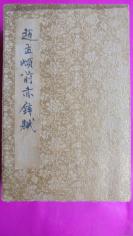 趙孟頫前赤壁賦